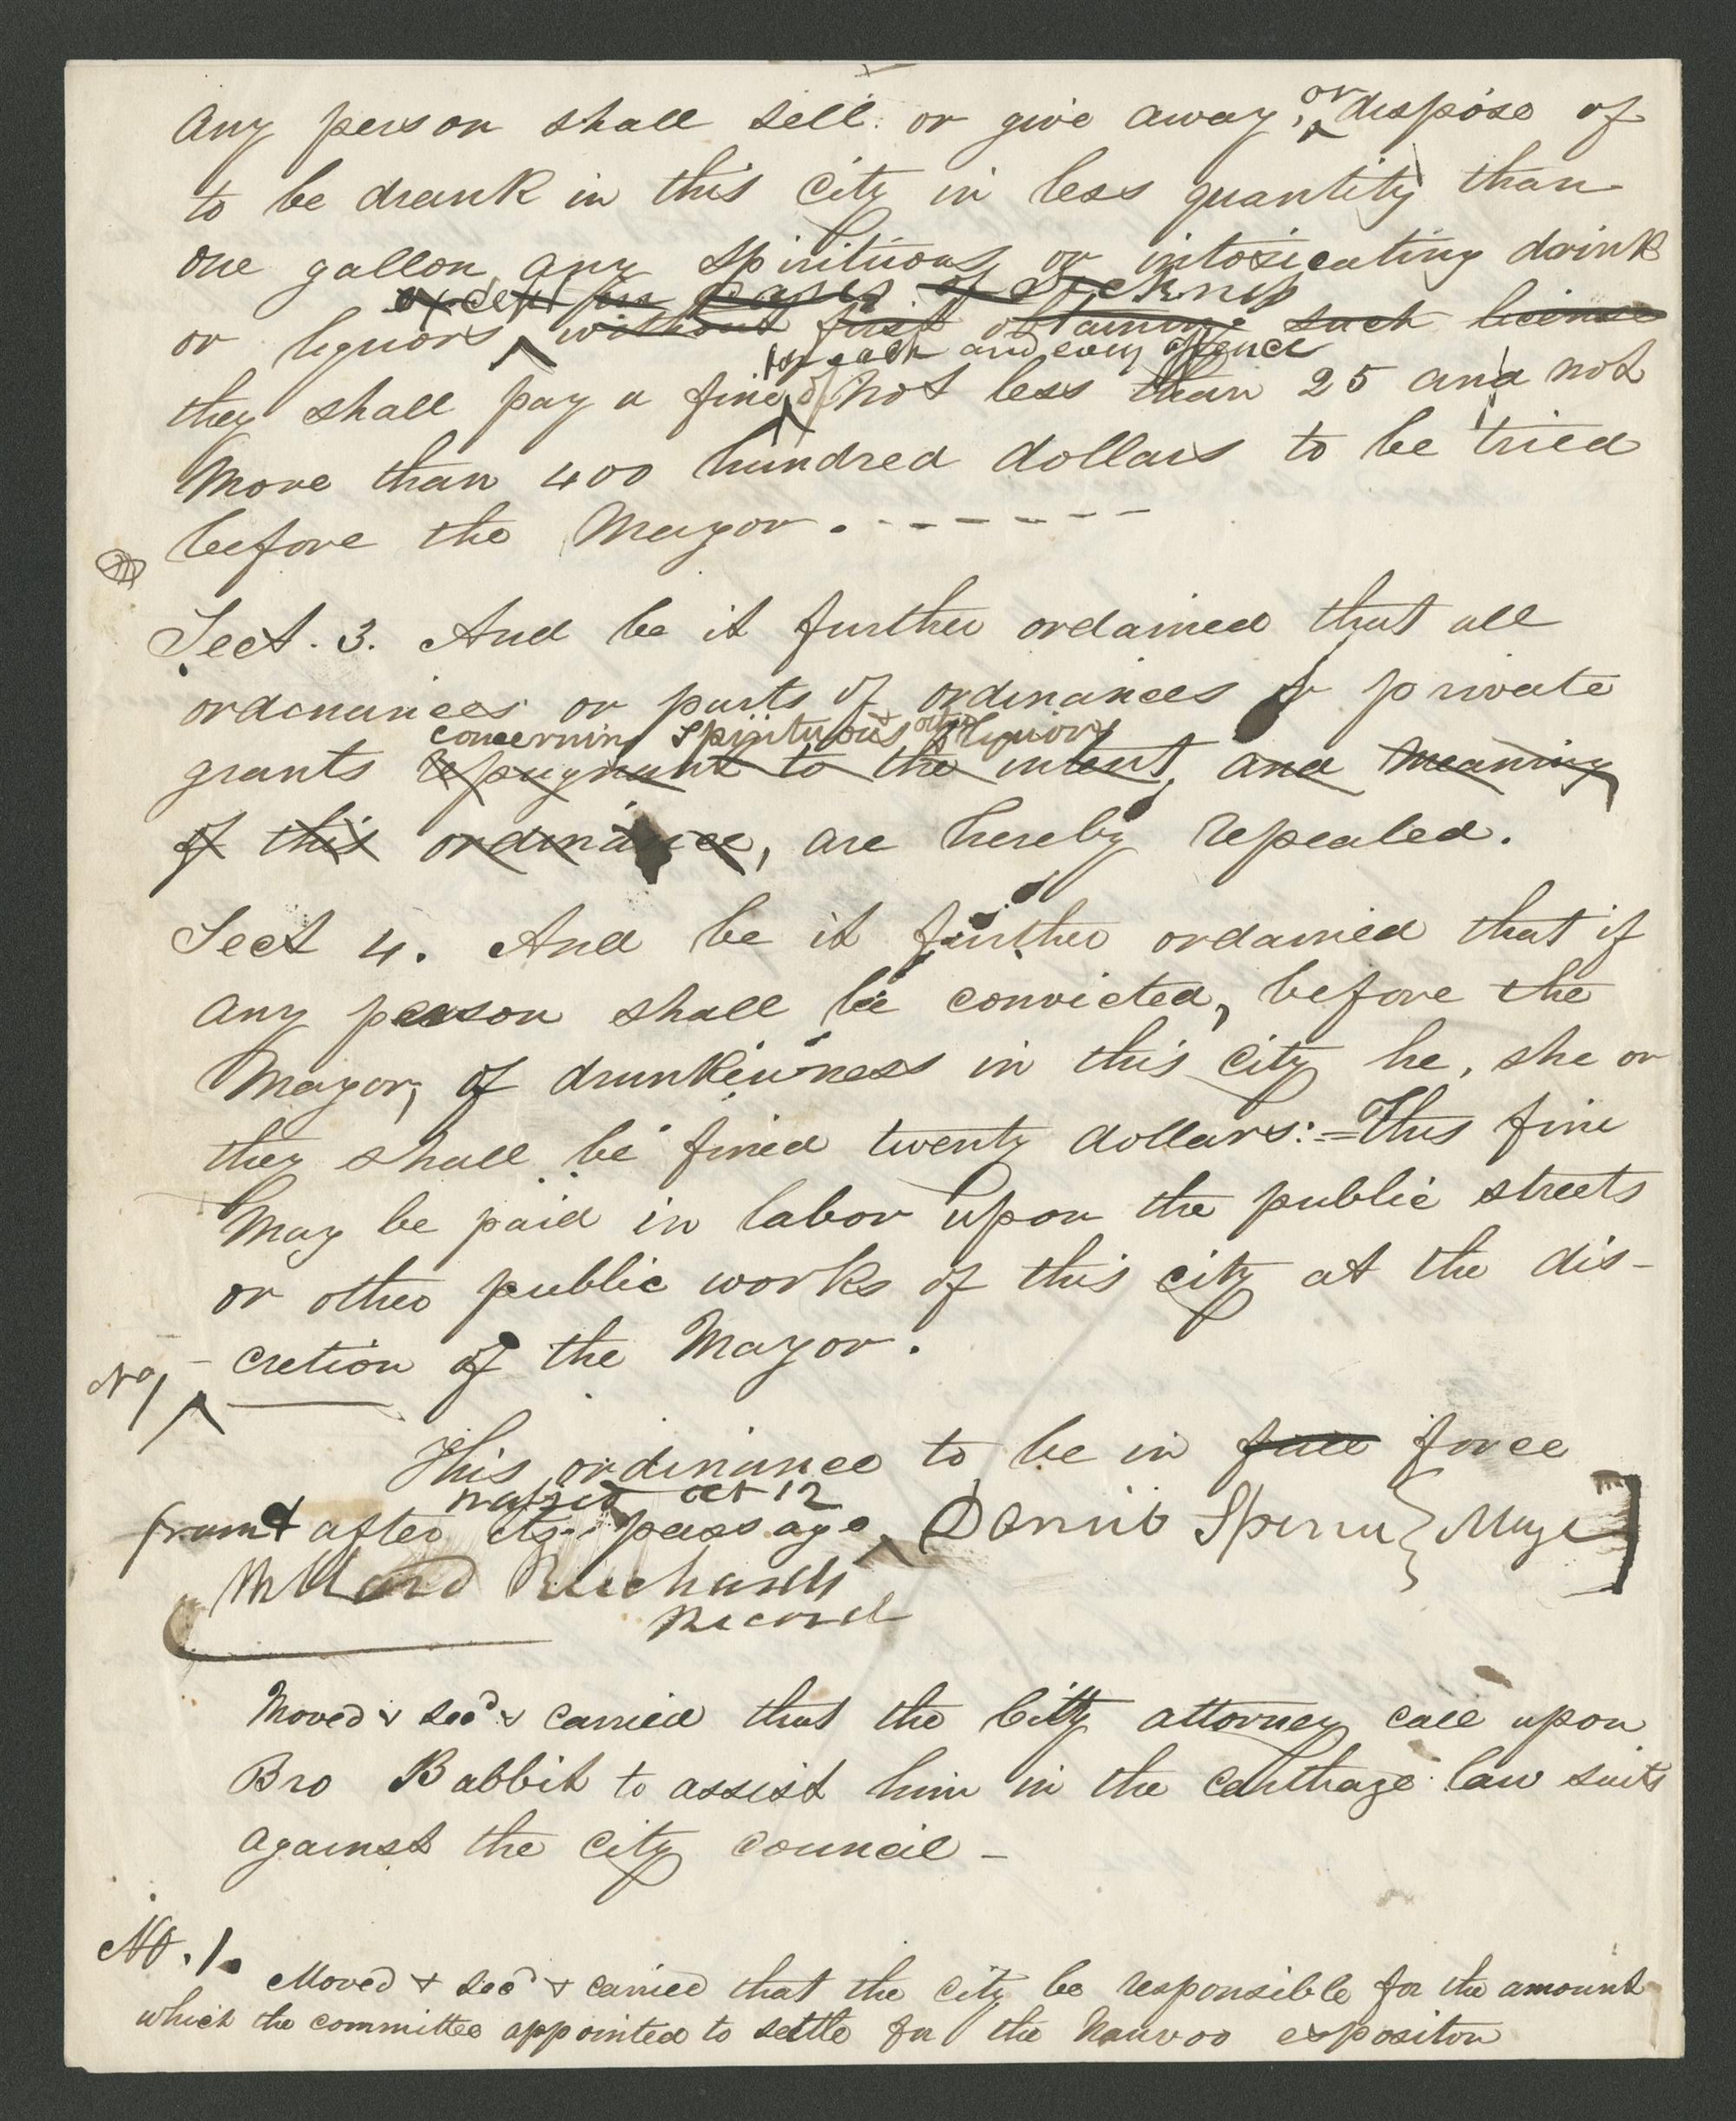 any person shall sell or give away, or dispose of
to be drank in this City in less quantity than
one gallon, any spirituous or intoxicating drink
except in cases of sickness
or liquors without first obtaining such license
for each and every offence
they shall pay a fine of not less than 25 and not
More than 400 hundred dollars to be tried
before the Mayor. - - - - - - -
Sect. 3. And be it further ordained that all
ordinances or parts of ordinances or private
concerning Spirituous & other liquors
grants repugnant to the intent, and meaning
of this ordinance, are hereby repealed.
Sect 4. And be it further ordained that if
any person shall be convicted, before the
Mayor, of drunkenness in this City he, she or
they shall be fined twenty dollars:=This fine
May be paid in labor upon the public streets
or other public works of this city at the dis-
No 1 - cretion of the Mayor.
This ordinance to be in force
passed oct 12
from & after its passage, Daniel Spencer } Mayor ]
Willard Richards
Record
Moved & sec'd & carried that the City attorney call upon
Bro Babbit to assist him in the Carthage law suits
against the city council -
No. 1.
Moved & sec'd & carried that the City be responsible for the amount
which the committee appointed to settle for the Nauvoo expositor